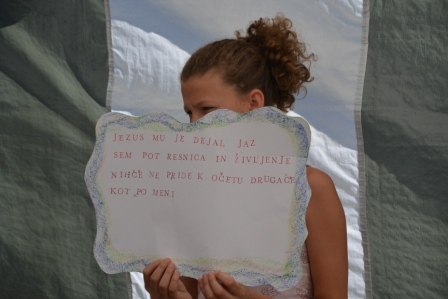 JEZUS MU JE DEJAL JAZ
SEM POT RESNICA IN ŽIVLJENJE
NIHČE NE PRIDE K OČETU DRUGAČE
KOT PO MENI